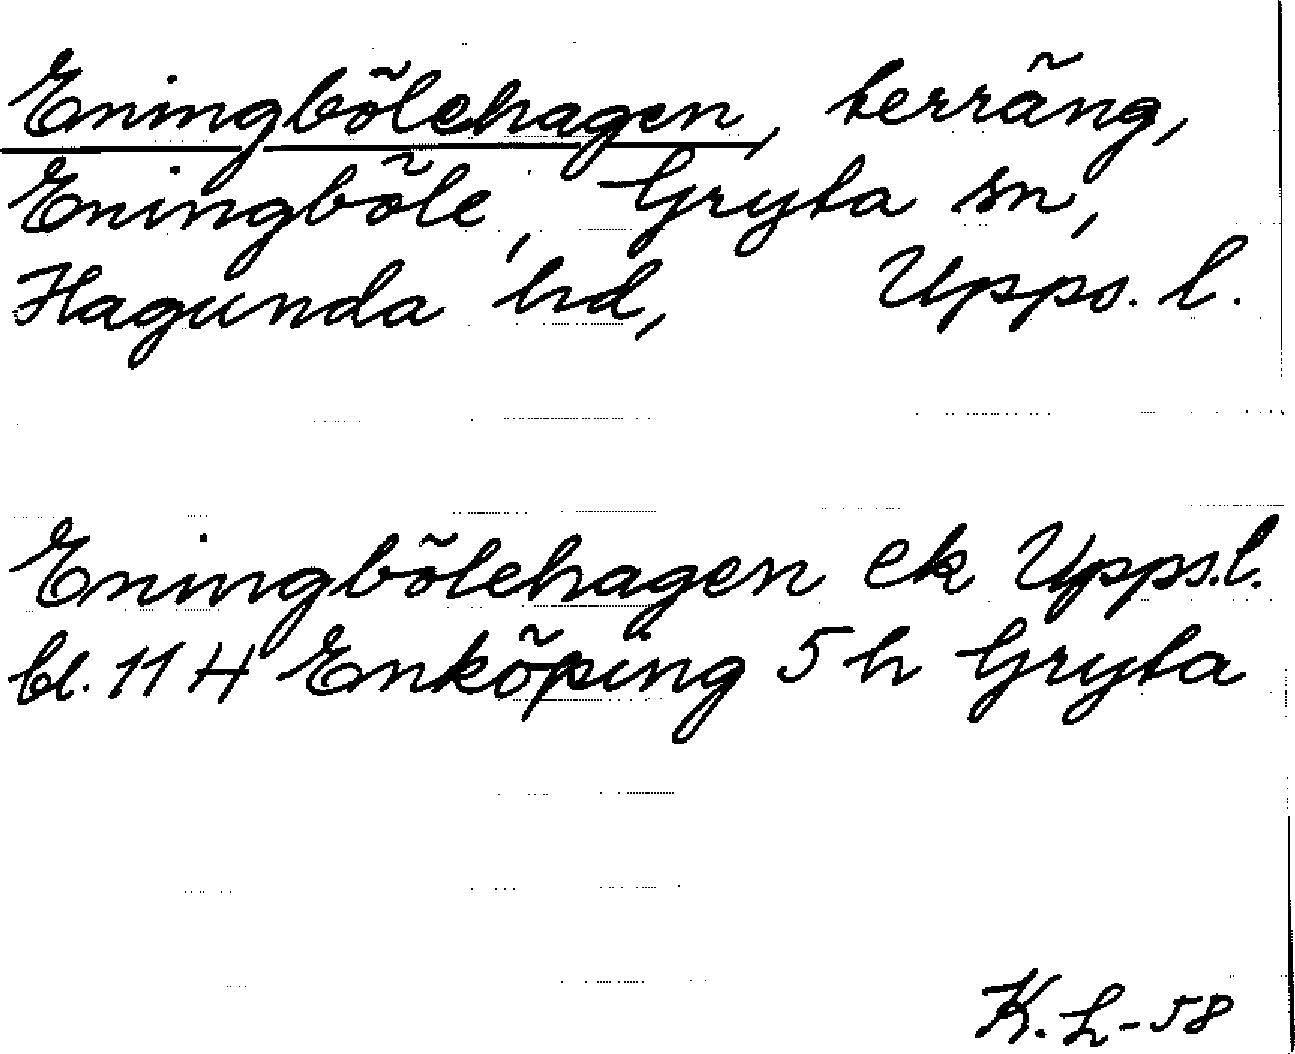 Eningbölehagen, terräng,
Eningböle, Gryta sn,
Hagunda hd, Upps. l.
Eningbölehagen ek Upps.l.
bl. 11 H Enköping 5 h Gryta
K. L-58